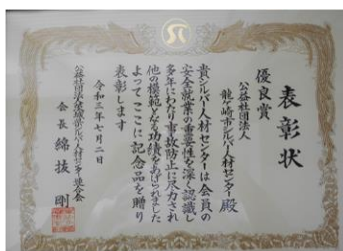 表彰状
優良賞
公益社団法人
龍ケ崎市シルバー人材センター殿
貴シルバー人材センターは会員の
安全就業の重要性を深く認識し
多年にわたり事故防止に尽力され
他の模範となる功績をあげられました
よってここに記念品を贈り
表彰します
令和三年七月二日
公益社団法人茨城県シルバー人材センター連合会
会長 綿抜 剛